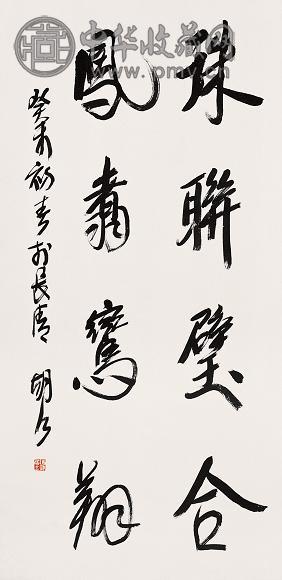 珠聯璧合
鳳翥鸞翔
癸未初春於長清 胡
中华收藏网
www.pmv.cn